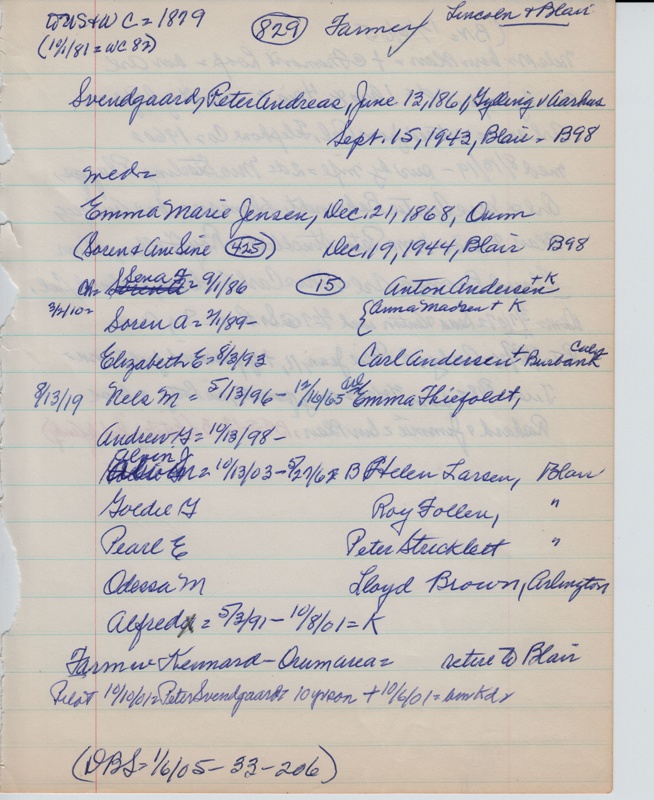 DUS & WC = 1879 (829) Farmer Lincoln & Blair
(10/1/81 = WC 82)
Svendgaard, Peter Andreas, June 13, 1861, Gylling v Aarhus
Sept. 15, 1943, Blair = B98
med =
Emma Marie Jensen, Dec. 21, 1868, Orum
(Soren & Ane Sine (425)) Dec. 19, 1944, Blair B98
Ch = Sena F = 9/1/86 (15) Anton Andersen + K
3/2/10 = { Anna Madsen + K
Soren A = 7/1/89 -
Elizabeth E = 8/3/93 Carl Andersen + Burbank Calif
8/13/19 Nels M = 5/13/96 - 12/16/65 Emma Thiefoldt,
Andrew G = 10/13/98 -
Elven J = 10/13/03 - 5/27/67 B Helen Larsen, Blair
Goldie G Roy Follen, "
Pearl E Peter Stricklett "
Odessa M Lloyd Brown, Arlington
Alfred = 5/3/91 - 10/8/01 = K
Farmer Kennard - Orum area = retire to Blair
Pilot 10/10/01 = Peter Svendgaard = 10 yr son + 10/6/01 =
(DBS = 1/6/05 - 33 - 206)